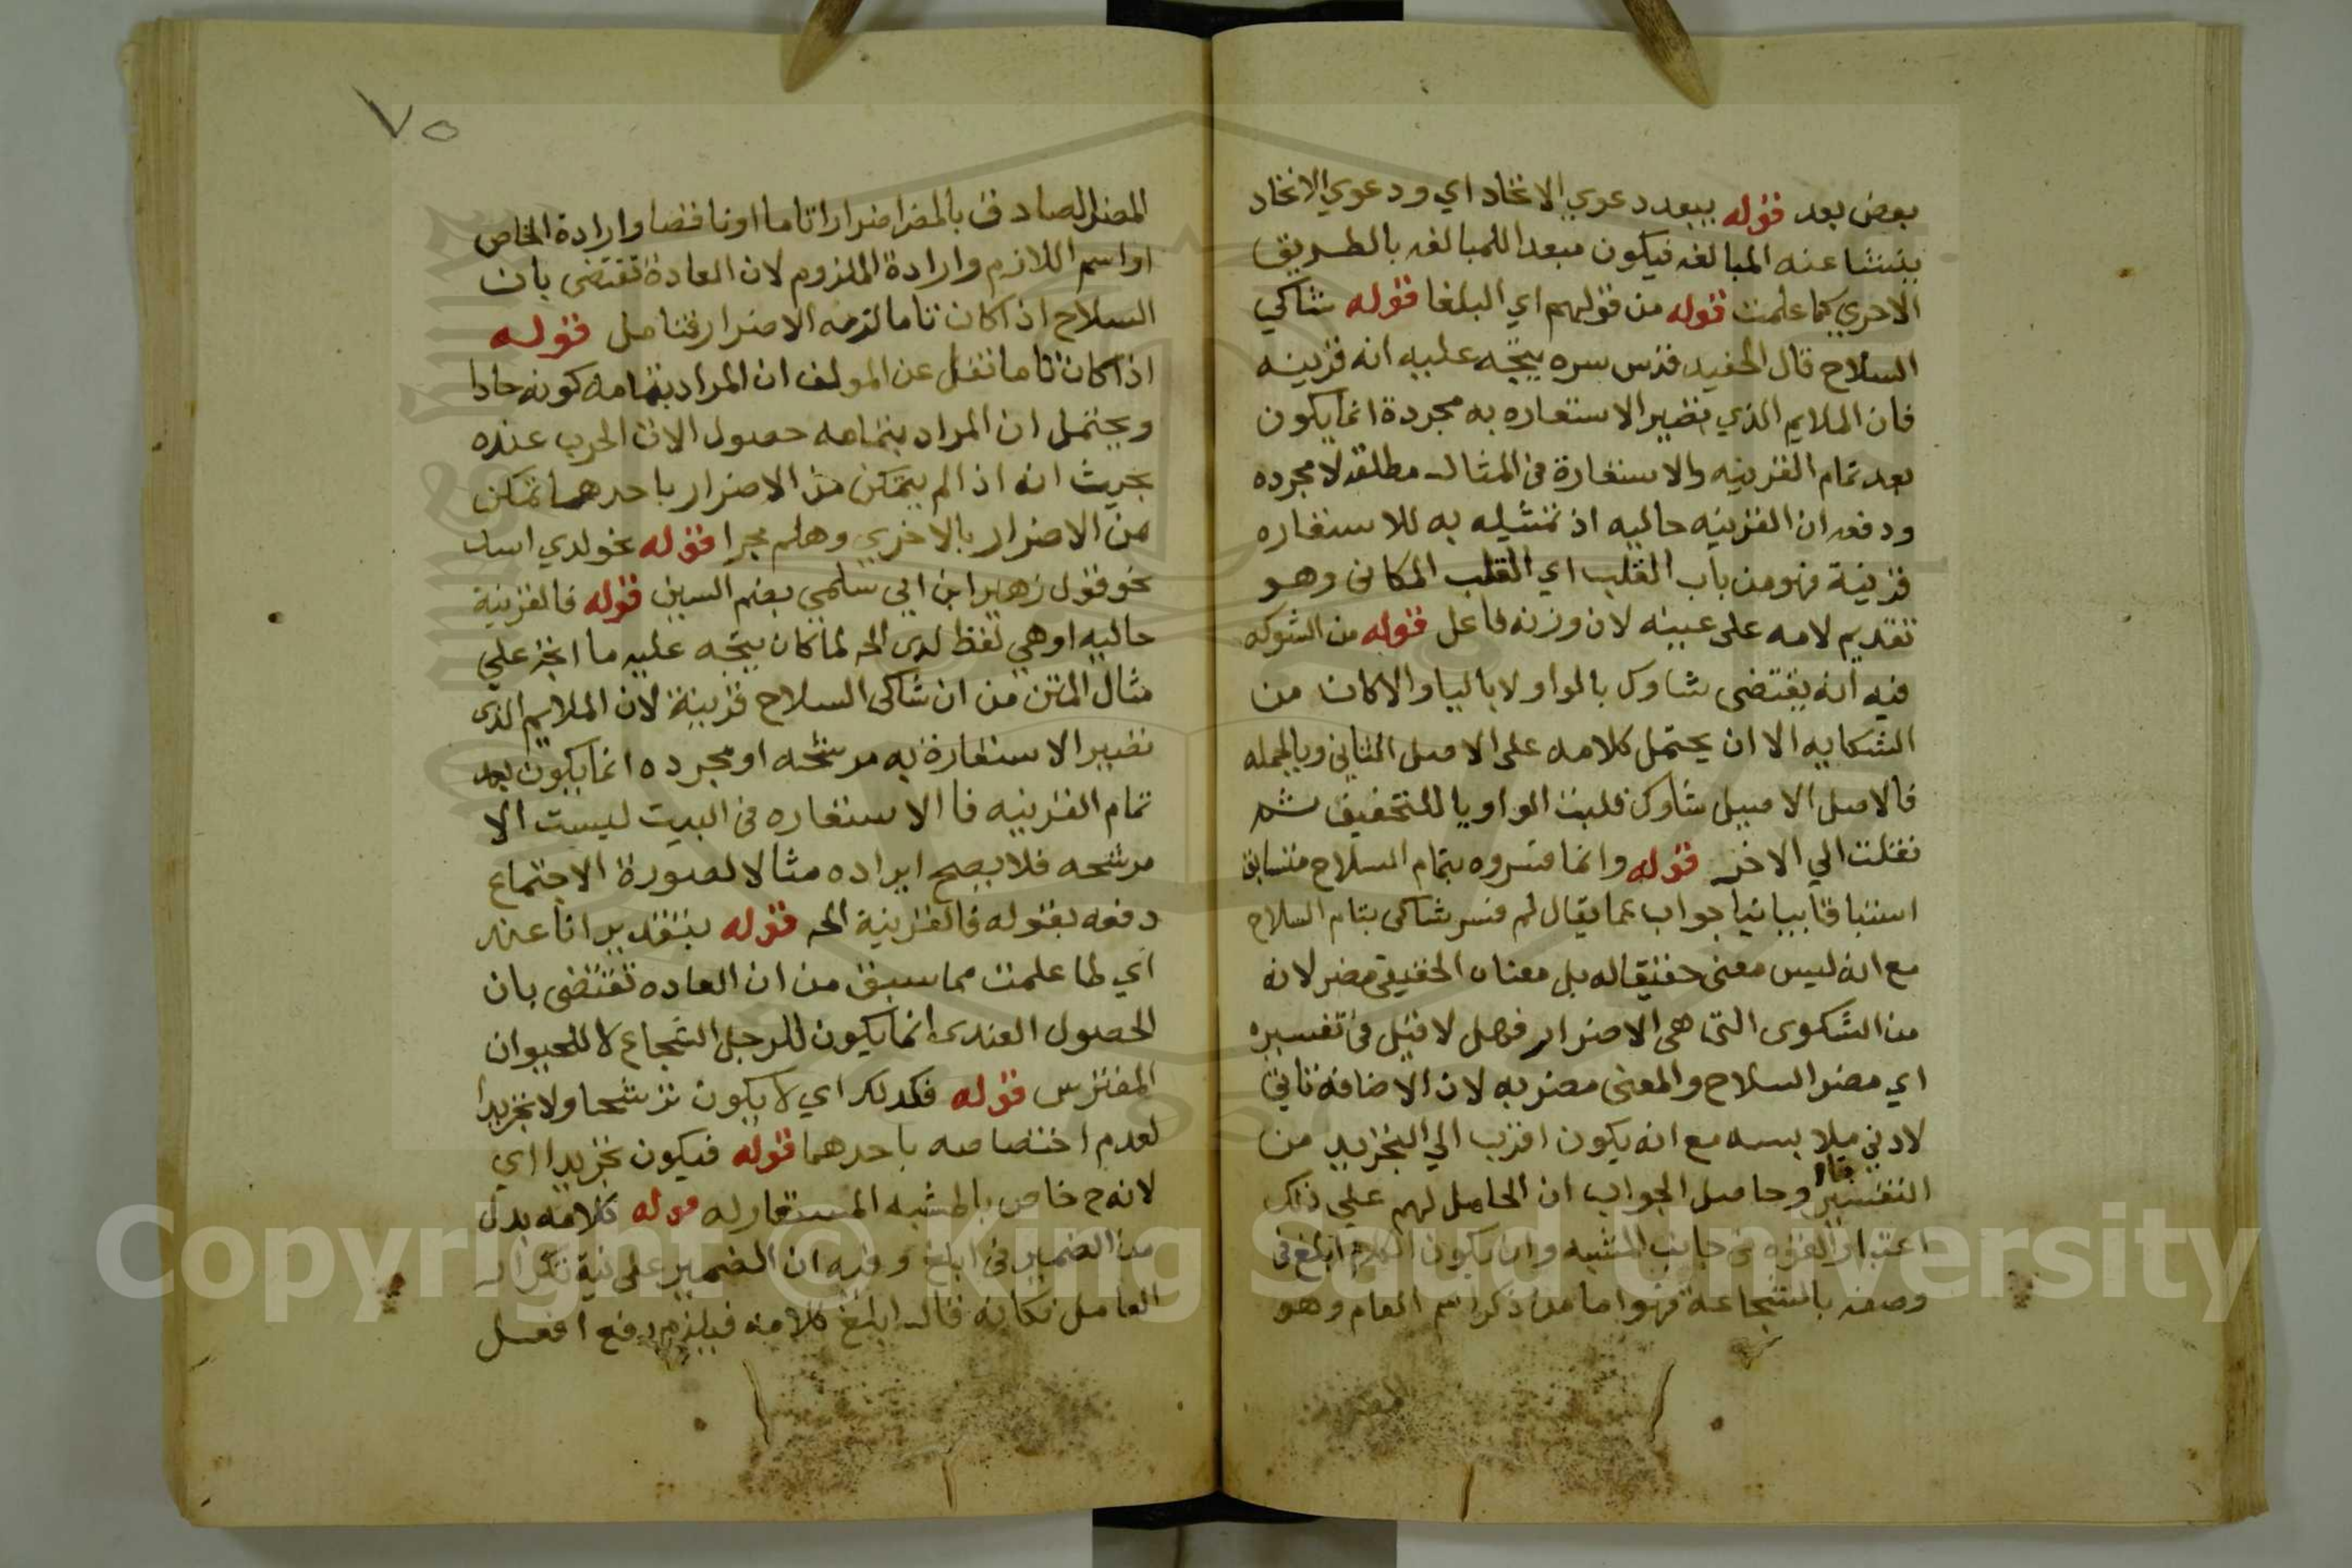 بعض بعد قوله يبعد دعوي الاتحاد اي ودعوي الاتحاد
ينشا عنه المبالغه فيكون مبعدا للمبالغه بالطريق
الاحري كما علمت قوله من قولهم اي البلغا قوله شاكي
السلاح قال الحفيد قدس سره يتجه عليه انه قرينه
فان الملايم الذي تصير الاستعاره به مجردة انما يكون
بعد تمام القرينه والاستعارة في المثال مطلقه لا مجرده
ودفعه ان القرينه حاليه اذ تمثيله به للاستعاره
قرينة فهو من باب القلب اي القلب المكاني وهو
تقديم لامه على عينه لان وزنه فاعل قوله من الشوكه
فيه انه يقتضى شاوك بالواو لا باليا والا كان من
الشكايه الا ان يحتمل كلامه على الاصل الثاني وبالجمله
فالاصل الاصيل شاوك قلبت الواو يا للتخفيف ثم
نقلت الي الاخر قوله وانما فسروه بتمام السلاح
استينافا بيانيا جواب عما يقال لم فسر شاكى بتمام السلاح
مع انه ليس معنى حقيقا له بل معناه الحقيقى مضر لانه
من الشكوى التى هى الاضرار فهل لا قيل فى تفسيره
اي مضر السلاح والمعنى مضر به لان الاضافه تاتي
لادني ملابسه مع انه يكون اقرب الي التجريد من
التفسير وحاصل الجواب ان الحامل لهم علي ذلك
اعتبار القوه في جانب المشبه وان يكون الكلام ابلغ فى
وصفه بالشجاعة فهو اما من ذكر اسم العام وهو
المضر
٧٥
المضر الصادق بالمضر اضرارا تاما او ناقصا وارادة الخاص
او اسم اللازم وارادة الملزوم لان العادة تقتضى بان
السلاح اذا كان تاما لزمه الاضرار فتامل قوله
اذا كان تاما نقل عن المولف ان المراد بتمامه كونه حادا
ويحتمل ان المراد بتمامه حصول الات الحرب عنده
بحيث انه اذا لم يتمكن من الاضرار باحدهما تمكن
من الاضرار بالاخري وهلم جرا قوله نحو لدي اسد
نحو قول زهير ابن ابي سلمي بضم السين قوله فالقرينة
حاليه او هي لفظ لدى الخ لما كان يتجه عليه ما اتجه علي
مثال المتن من ان شاكى السلاح قرينة لان الملايم الذى
تصير الاستعارة به مرشحه او مجرده انما يكون بعد
تمام القرينه فا الاستعاره فى البيت ليست الا
مرشحه فلا يصح ايراده مثالا لصورة الاجتماع
دفعه بقوله فالقرينة الخ قوله بتقدير انا عند
اي لما علمت مما سبق من ان العاده تقتضى بان
الحصول العندى انما يكون للرجل الشجاع لا للحيوان
المفترس قوله فكدلك اي لا يكون ترشحا ولا تجريدا
لعدم اختصاصه باحدهما قوله فيكون تجريدا اي
لانه ح خاص بالمشبه المستعار له قوله كلامه بدل
من الضمير فى ابلغ وفيه ان الضمير على نية تكرار
العامل فكانه قال ابلغ كلامه فيلزم رفع افعل
Copyright © King Saud University